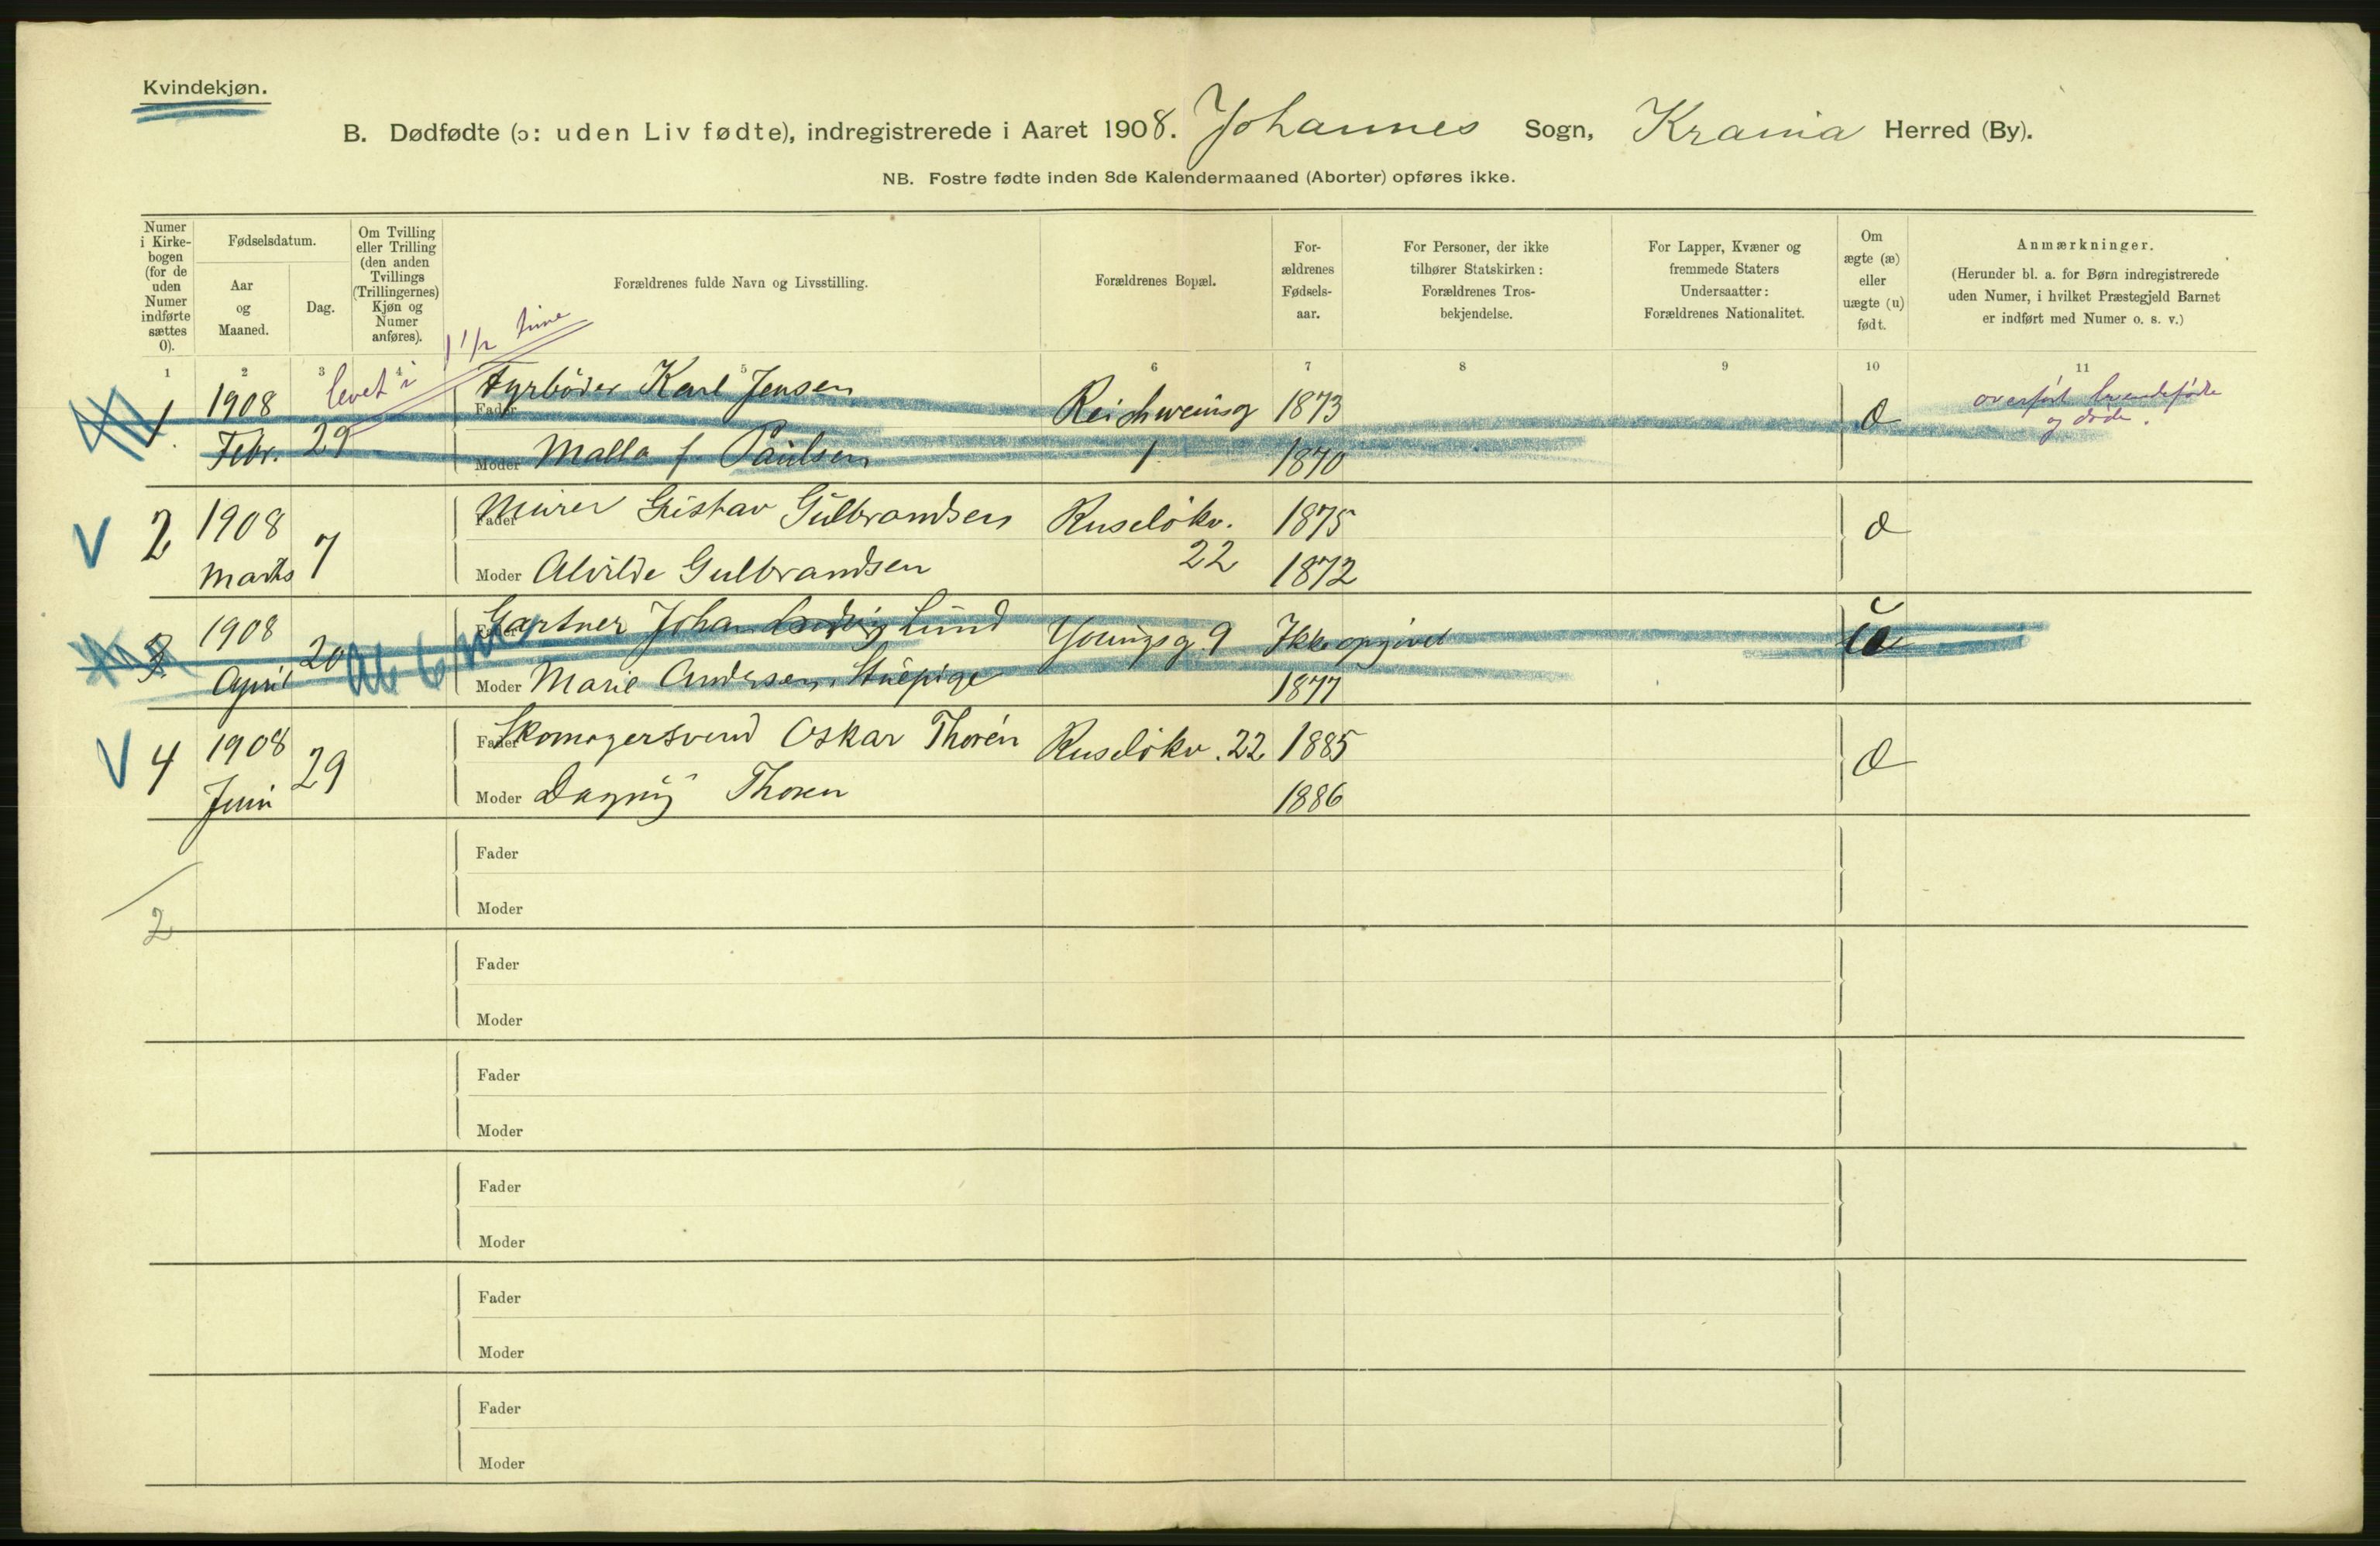 Kvindekjøn.
B. Dødfødte (ɔ: uden Liv fødte), indregistrerede i Aaret 1908. Johannes Sogn, Krania Herred (By).
NB. Fostre fødte inden 8de Kalendermaaned (Aborter) opføres ikke.
Numer i Kirke- bogen (for de uden Numer indførte sættes 0).
Fødselsdatum.
Aar og Maaned.
Dag.
Om Tvilling eller Trilling (den anden Tvillings (Trillingernes) Kjøn og Numer anføres).
Forældrenes fulde Navn og Livsstilling.
Forældrenes Bopæl.
For- ældrenes Fødsels- aar.
For Personer, der ikke tilhører Statskirken: Forældrenes Tros- bekjendelse.
For Lapper, Kvæner og fremmede Staters Undersaatter: Forældrenes Nationalitet.
Om ægte (æ) eller uægte (u) født.
Anmærkninger.
(Herunder bl. a. for Børn indregistrerede uden Numer, i hvilket Præstegjeld Barnet er indført med Numer o. s. v.)
1 2 3 4 5 6 7 8 9 10 11
levet i 1 1/2 time
1. 1908 Fader Fyrbøder Karl Jensen Reichweinsg 1873 æ overført levendefødte
Febr. 29 Moder Malla f. Paulsen 1 1870 og døde.
V 2 1908 Fader Murer Gustav Gulbrandsen Ruseløkv. 1875 æ
Marts 7 Moder Alvilde Gulbrandsen 22 1872
3 1908 Fader Gartner Johan Ludvig Lund Youngsg. 9 Ikke opgivet u
April 20 Ab 6 Moder Marie Andersen, Stuepige 1877
V 4 1908 Fader Skomagersvend Oskar Thorén Ruseløkv. 22 1885 æ
Juni 29 Moder Dagny Thoren 1886
Fader
Moder
2
Fader
Moder
Fader
Moder
Fader
Moder
Fader
Moder
Fader
Moder